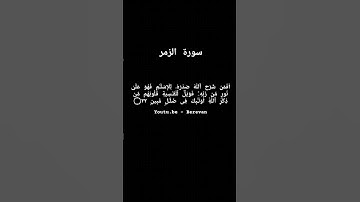 سورة الزمر
أفمن شرح ٱلله صدره للإسلٰم فهو علىٰ
نور من ربهۦ فويل للقٰسية قلوبهم من
ذكر ٱلله أولٰئك فى ضلٰل مبين ۝٢٢
Youtu.be - Berevan